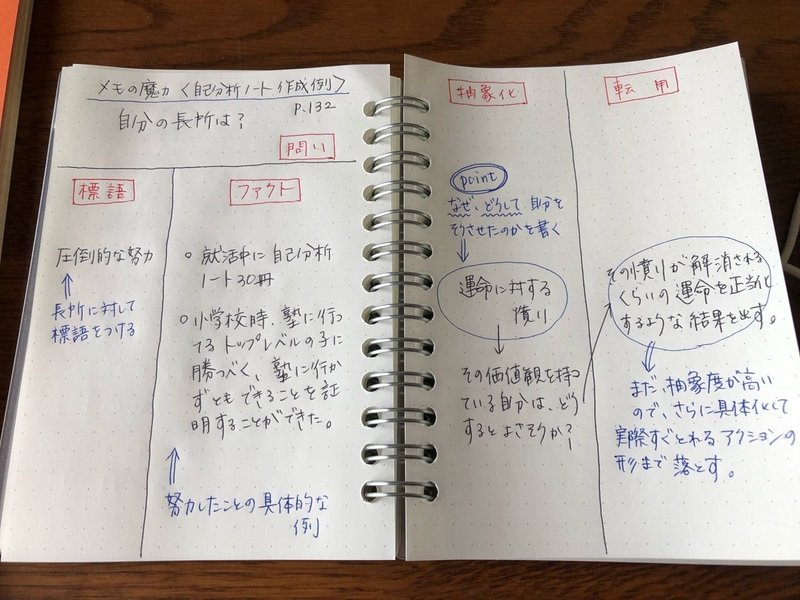 メモの魔力〈自己分析ノート作成例〉
P.132
自分の長所は?
問い
標語
圧倒的な努力
長所に対して
標語をつける
ファクト
○ 就活中に自己分析
ノート30冊
○ 小学校時、塾に行っ
てるトップレベルの子に
勝つべく、塾に行か
ずともできることを証
明することができた。
努力したことの具体的な
例
抽象化
point
なぜ、どうして自分を
そうさせたのかを書く
運命に対する
憤り
その価値観を持っ
ている自分は、どう
するとよさそうか?
転用
その憤りが解消される
くらいの運命を正当化
するような結果を出す。
まだ、抽象度が高い
ので、さらに具体化して
実際すぐとれるアクションの
形まで落とす。